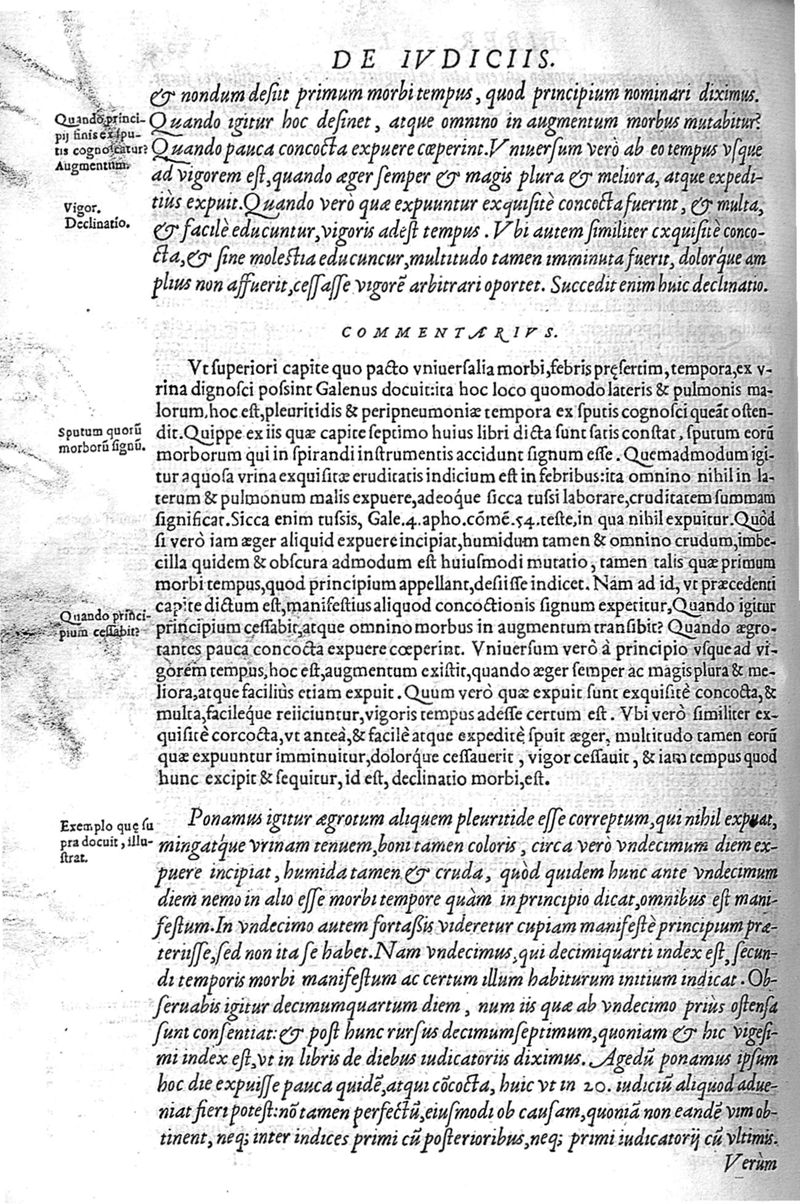 DE IVDICIIS.
& nondum desiit primum morbi tempus, quod principium nominari diximus.
Quando igitur hoc desinet, atque omnino in augmentum morbus mutabitur?
Quando pauca concocta expuere cœperint. Vniuersum verò ab eo tempus vsque
ad vigorem est, quando æger semper & magis plura & meliora, atque expedi-
tiùs expuit. Quando verò quæ expuuntur exquisitè concocta fuerint, & multa,
& facilè educuntur, vigoris adest tempus. Vbi autem similiter cxquisitè conco-
cta, & sine molestia educuncur, multitudo tamen imminuta fuerit, dolorq́ue am
plius non affuerit, cessasse vigorē arbitrari oportet. Succedit enim huic declinatio.
Quando princi-
pij finis ex spu-
tis cognoscatur?
Augmentum.
Vigor.
Declinatio.
COMMENTARIVS.
Vt superiori capite quo pacto vniuersalia morbi, febris pręsertim, tempora, ex v-
rina dignosci possint Galenus docuit: ita hoc loco quomodo lateris & pulmonis ma-
lorum, hoc est, pleuritidis & peripneumoniæ tempora ex sputis cognosci queāt osten-
dit. Quippe ex iis quæ capite septimo huius libri dicta sunt satis constat, sputum eorū
morborum qui in spirandi instrumentis accidunt signum esse. Quemadmodum igi-
tur aquosa vrina exquisitæ eruditatis indicium est in febribus: ita omnino nihil in la-
terum & pulmonum malis expuere, adeoque sicca tussi laborare, cruditatem summam
significat. Sicca enim tussis, Gale. 4. apho. cōmē. 54. teste, in qua nihil expuitur. Quòd
si verò iam æger aliquid expuere incipiat, humidum tamen & omnino crudum, imbe-
cilla quidem & obscura admodum est huiusmodi mutatio, tamen talis quæ primum
morbi tempus, quod principium appellant, desiisse indicet. Nam ad id, vt præcedenti
capite dictum est, manifestius aliquod concoctionis signum expetitur, Quando igitur
principium cessabit, atque omnino morbus in augmentum transibit? Quando ægro-
tantes pauca concocta expuere cœperint. Vniuersum verò à principio vsque ad vi-
gorem tempus, hoc est, augmentum existit, quando æger semper ac magis plura & me-
liora, atque faciliùs etiam expuit. Quum verò quæ expuit sunt exquisitè concocta, &
multa, facileque reiiciuntur, vigoris tempus adesse certum est. Vbi verò similiter ex-
quisitè corcocta, vt anteà, & facilè atque expeditè spuit æger, multitudo tamen eorū
quæ expuuntur imminuitur, dolorque cessauerit, vigor cessauit, & iam tempus quod
hunc excipit & sequitur, id est, declinatio morbi, est.
Sputum quorū
morborū signū.
Quando princi-
pium cessabit?
Ponamus igitur ægrotum aliquem pleuritide esse correptum, qui nihil expuat,
mingatq́ue vrinam tenuem, boni tamen coloris, circa verò vndecimum diem ex-
puere incipiat, humida tamen & cruda, quòd quidem hunc ante vndecimum
diem nemo in alio esse morbi tempore quàm in principio dicat, omnibus est mani-
festum. In vndecimo autem fortassis videretur cupiam manifestè principium præ-
teriisse, sed non ita se habet. Nam vndecimus, qui decimiquarti index est, secun-
di temporis morbi manifestum ac certum illum habiturum initium indicat. Ob-
seruabis igitur decimumquartum diem, num iis quæ ab vndecimo priùs ostensa
sunt consentiat: & post hunc rursus decimumseptimum, quoniam & hic vigesi-
mi index est, vt in libris de diebus iudicatoriis diximus. Agedū ponamus ipsum
hoc die expuisse pauca quidē, atqui cōcocta, huic vt in 20. iudiciū aliquod adue-
niat fieri potest: nō tamen perfectū, eiusmodi ob causam, quoniā non eandē vim ob-
tinent, neq; inter indices primi cū posterioribus, neq; primi iudicatorij cū vltimis.
Verùm
Exemplo quę su
pra docuit, illu-
strat.